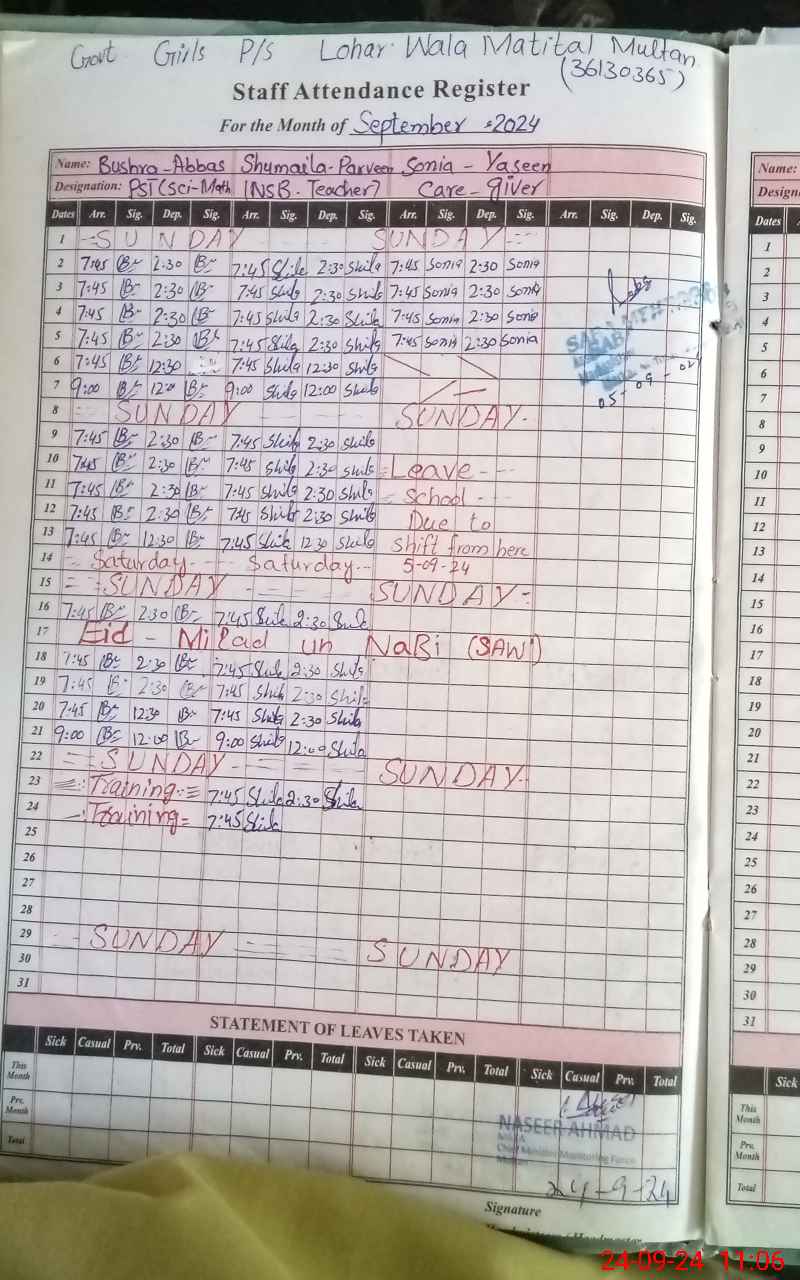 Govt Girls P/S Lohar Wala Matital Multan
(36130365)
Staff Attendance Register
For the Month of September 2024
Name: Bushra-Abbas Shumaila-Parveen Sonia-Yaseen
Designation: PST(Sci-Math) (NSB-Teacher) Care-giver
Dates Arr. Sig. Dep. Sig. Arr. Sig. Dep. Sig. Arr. Sig. Dep. Sig. Arr. Sig. Dep. Sig.
1 SUNDAY SUNDAY
2 7:45 2:30 7:45 Shila 2:30 Shila 7:45 Sonia 2:30 Sonia
3 7:45 2:30 7:45 Shila 2:30 Shila 7:45 Sonia 2:30 Sonia
4 7:45 2:30 7:45 Shila 2:30 Shila 7:45 Sonia 2:30 Sonia
5 7:45 2:30 7:45 Shila 2:30 Shila 7:45 Sonia 2:30 Sonia
6 7:45 12:30 7:45 Shila 12:30 Shila
7 9:00 12:00 9:00 Shila 12:00 Shila
05-09-02
8 SUNDAY SUNDAY
9 7:45 2:30 7:45 Shila 2:30 Shila
10 7:45 2:30 7:45 Shila 2:30 Shila Leave
11 7:45 2:30 7:45 Shila 2:30 Shila School
12 7:45 2:30 7:45 Shila 2:30 Shila Due to
13 7:45 12:30 7:45 Shila 12:30 Shila shift from here
14 Saturday Saturday 5-09-24
15 SUNDAY SUNDAY
16 7:45 2:30 7:45 Shila 2:30 Shila
17 Eid - Milad un NaBi (SAW)
18 7:45 2:30 7:45 Shila 2:30 Shila
19 7:45 2:30 7:45 Shila 2:30 Shila
20 7:45 12:30 7:45 Shila 2:30 Shila
21 9:00 12:00 9:00 Shila 12:00 Shila
22 SUNDAY SUNDAY
23 Training 7:45 Shila 2:30 Shila
24 Training 7:45 Shila
25
26
27
28
29 SUNDAY SUNDAY
30
31
STATEMENT OF LEAVES TAKEN
Sick Casual Prv. Total Sick Casual Prv. Total Sick Casual Prv. Total Sick Casual Prv. Total
This Month
Prv. Month
Total
NASEER AHMAD
Chief Minister Monitoring Force
24-9-24
Signature
Name:
Dates
1
2
3
4
5
6
7
8
9
10
11
12
13
14
15
16
17
18
19
20
21
22
23
24
25
26
27
28
29
30
31
Sick
This Month
Prv. Month
Total
24-09-24 11:06